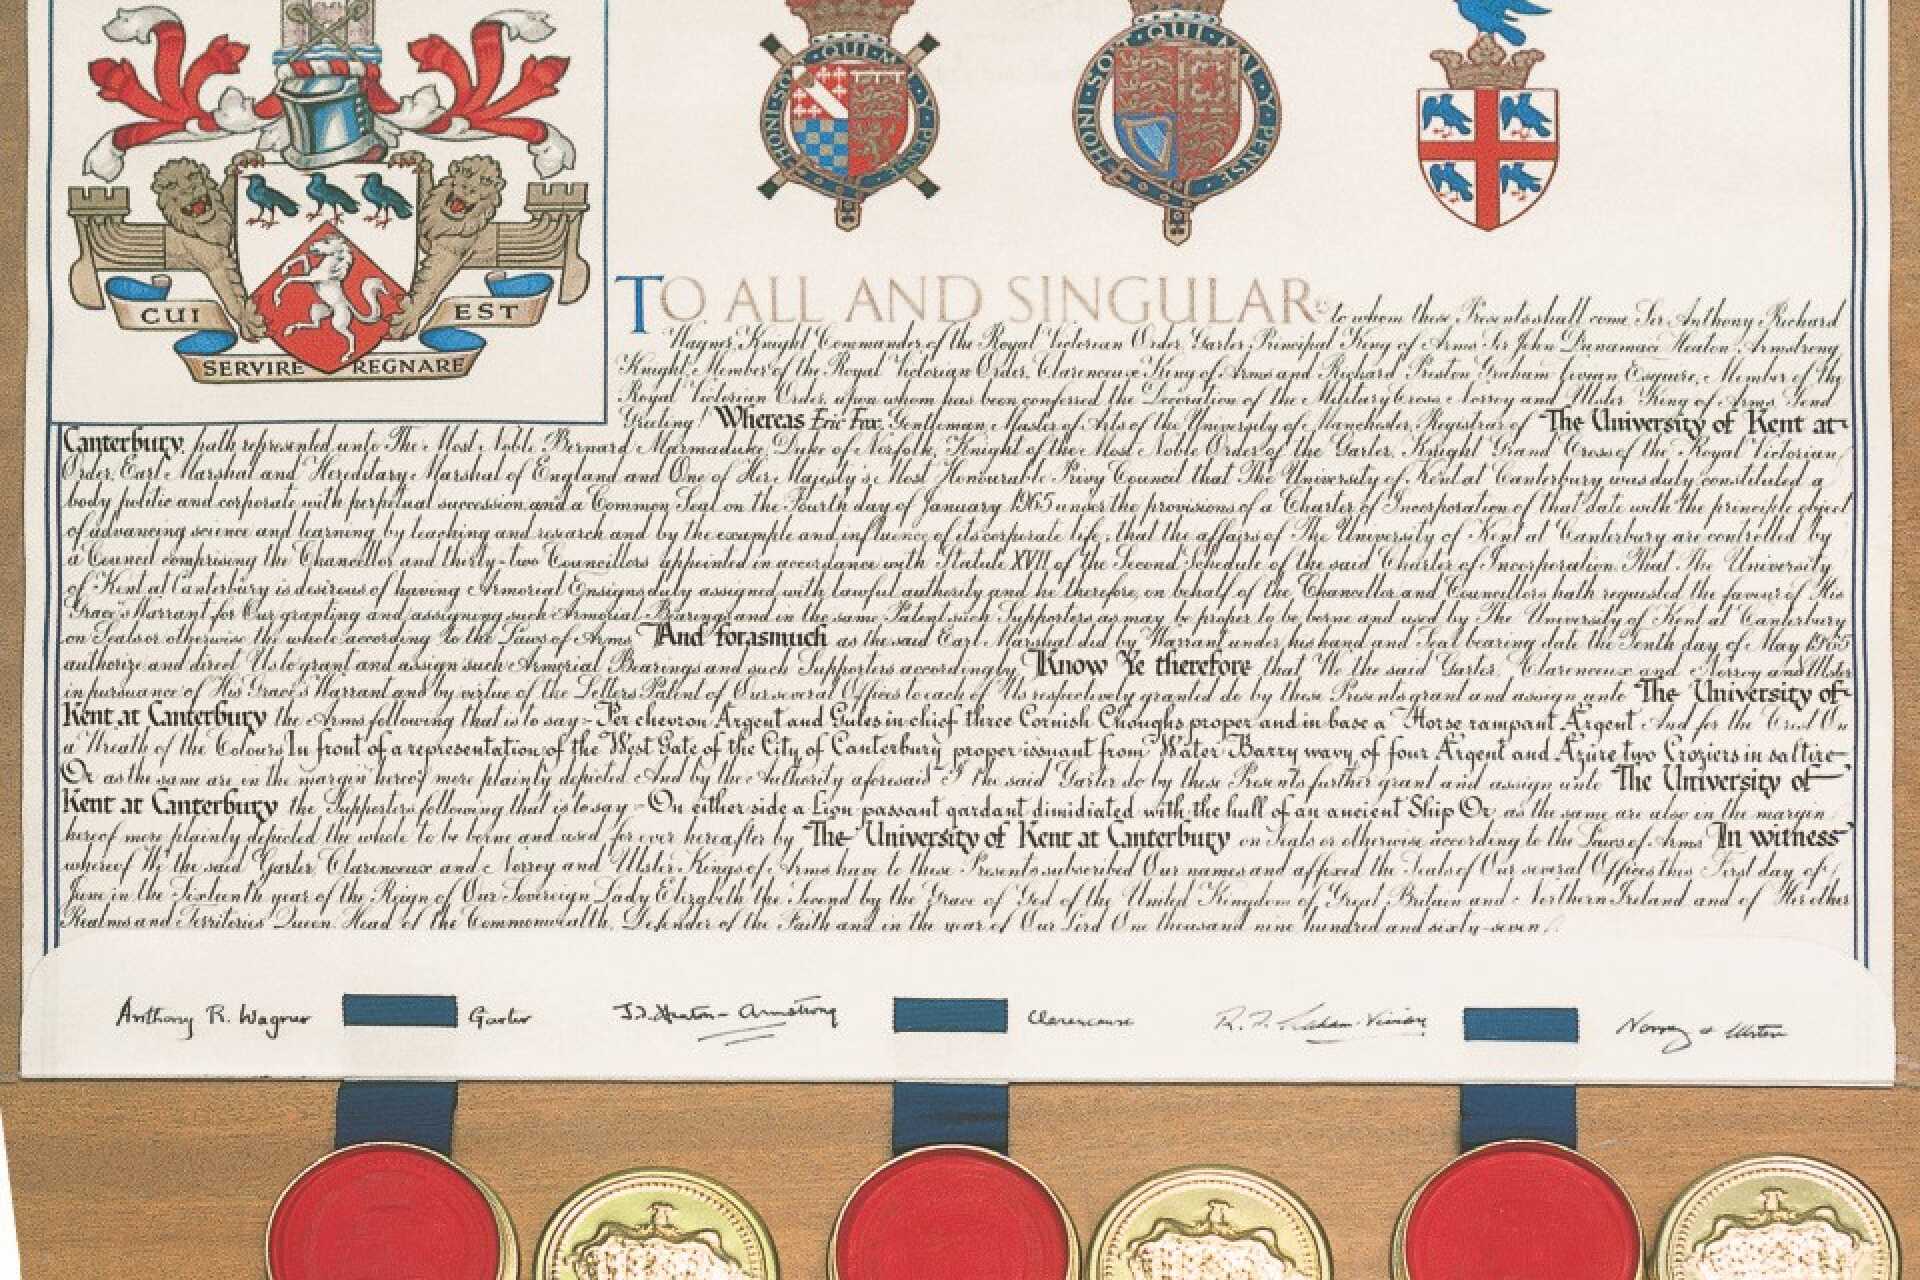 HONI·SOIT·QUI·MAL·Y·PENSE
HONI·SOIT·QUI·MAL·Y·PENSE
CUI
EST
SERVIRE REGNARE
TO ALL AND SINGULAR to whom these Presents shall come, Sir Anthony Richard
Wagner, Knight Commander of the Royal Victorian Order, Garter Principal King of Arms Sir John Dunamace Heaton-Armstrong,
Knight, Member of the Royal Victorian Order, Clarenceux King of Arms and Richard Preston Graham-Vivian Esquire, Member of the
Royal Victorian Order, upon whom has been conferred the Decoration of the Military Cross, Norroy and Ulster King of Arms Send
Greeting! Whereas Eric Fox, Gentleman, Master of Arts of the University of Manchester, Registrar of The University of Kent at
Canterbury, hath represented unto The Most Noble Bernard Marmaduke, Duke of Norfolk, Knight of the Most Noble Order of the Garter, Knight Grand Cross of the Royal Victorian
Order, Earl Marshal and Hereditary Marshal of England and One of Her Majesty's Most Honourable Privy Council that The University of Kent at Canterbury was duly constituted a
body politic and corporate with perpetual succession and a Common Seal on the Fourth day of January 1965 under the provisions of a Charter of Incorporation of that date with the principle object
of advancing science and learning by teaching and research and by the example and influence of its corporate life; that the affairs of The University of Kent at Canterbury are controlled by
a Council comprising the Chancellor and thirty-two Councillors appointed in accordance with Statute XVII of the Second Schedule of the said Charter of Incorporation That The University
of Kent at Canterbury is desirous of having Armorial Ensigns duly assigned with lawful authority and he therefore, on behalf of the Chancellor and Councillors hath requested the favour of His
Grace's Warrant for Our granting and assigning such Armorial Bearings and in the same Patent such Supporters as may be proper to be borne and used by The University of Kent at Canterbury
on Seals or otherwise the whole according to the Laws of Arms And forasmuch as the said Earl Marshal did by Warrant under his hand and Seal bearing date the Tenth day of May 1965
authorize and direct Us to grant and assign such Armorial Bearings and such Supporters accordingly Know Ye therefore that We the said Garter, Clarenceux and Norroy and Ulster
in pursuance of His Grace's Warrant and by virtue of the Letters Patent of Our several Offices to each of Us respectively granted do by these Presents grant and assign unto The University of
Kent at Canterbury the Arms following that is to say:- Per chevron Argent and Gules in chief three Cornish Choughs proper and in base a Horse rampant Argent And for the Crest On
a Wreath of the Colours In front of a representation of the West Gate of the City of Canterbury proper issuant from Water Barry wavy of four Argent and Azure two Croziers in saltire
Or as the same are in the margin hereof more plainly depicted And by the Authority aforesaid I the said Garter do by these Presents further grant and assign unto The University of
Kent at Canterbury the Supporters following that is to say:- On either side a Lion passant gardant dimidiated with the hull of an ancient Ship Or as the same are also in the margin
hereof more plainly depicted the whole to be borne and used for ever hereafter by The University of Kent at Canterbury on Seals or otherwise according to the Laws of Arms In witness
whereof We the said Garter, Clarenceux and Norroy and Ulster Kings of Arms have to these Presents subscribed Our names and affixed the Seals of Our several Offices this First day of
June in the Sixteenth year of the Reign of Our Sovereign Lady Elizabeth the Second by the Grace of God of the United Kingdom of Great Britain and Northern Ireland and of Her other
Realms and Territories Queen, Head of the Commonwealth, Defender of the Faith and in the year of Our Lord One thousand nine hundred and sixty-seven.
Anthony R. Wagner Garter J. D. Heaton-Armstrong Clarenceux R. P. Graham-Vivian Norroy & Ulster